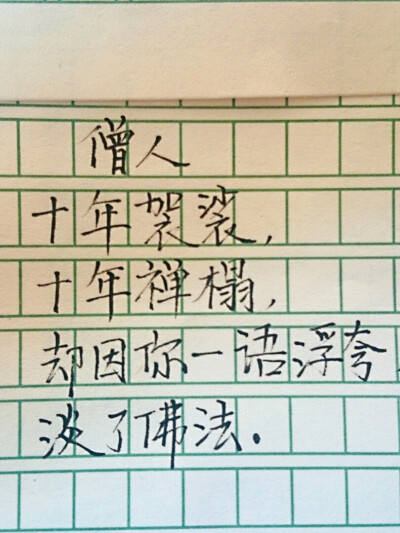 僧人
十年袈裟,
十年禅榻,
却因你一语浮夸,
淡了佛法.